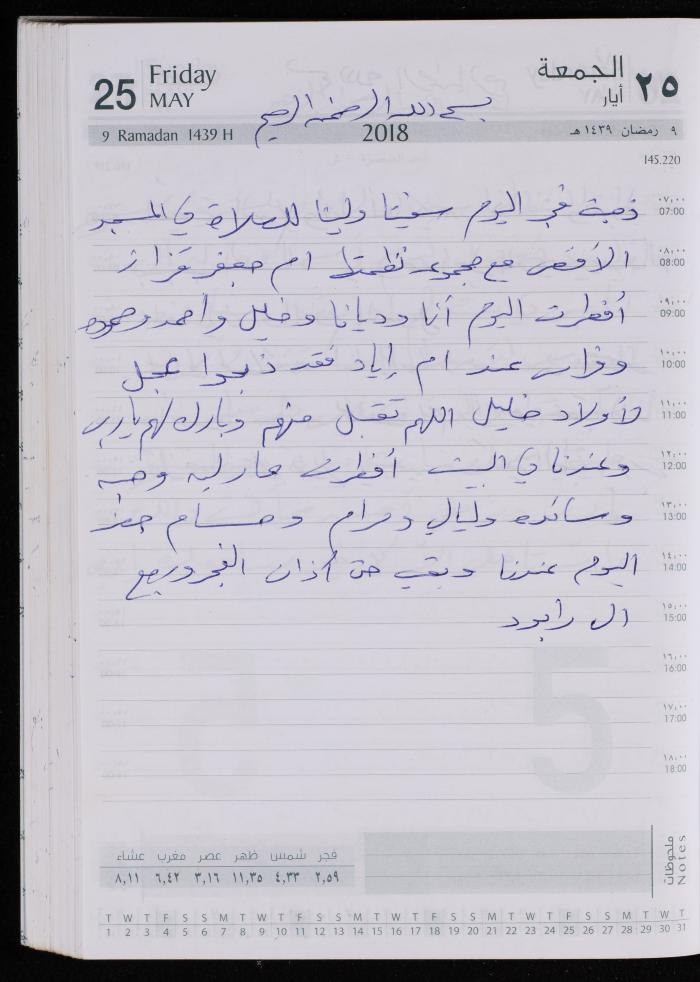 25 Friday MAY
الجمعة ٢٥ أيار
بسم الله الرحمن الرحيم
9 Ramadan 1439 H 2018 ٩ رمضان ١٤٣٩ هـ
145.220
٠٧,٠٠ 07:00 ذهبة فجر اليوم سفيتا وليتا للصلاة في المسجد
٠٨,٠٠ 08:00 الأقصى مع مجموعه نظمتها ام جعفر قزاز
٠٩,٠٠ 09:00 أفطرت اليوم أنا وديانا وخليل وأحمد وحموده
١٠,٠٠ 10:00 وفراس عند ام إياد فقد ذبحوا عجل
١١,٠٠ 11:00 لأولاد خليل اللهم تقبل منهم وبارك لهم يارب
١٢,٠٠ 12:00 وعندنا في البيت أفطرت
١٣,٠٠ 13:00 وسائده وليالي ومرام وحسام
١٤,٠٠ 14:00 اليوم عندنا وبقي حتى أذان الفجر ورجع
١٥,٠٠ 15:00 ال
١٦,٠٠ 16:00
١٧,٠٠ 17:00
١٨,٠٠ 18:00
ملحوظات Notes
فجر شمس ظهر عصر مغرب عشاء
٢,٥٩ ٤,٣٣ ١١,٣٥ ٣,١٦ ٦,٤٢ ٨,١١
T W T F S S M T W T F S S M T W T F S S M T W T F S S M T W T
1 2 3 4 5 6 7 8 9 10 11 12 13 14 15 16 17 18 19 20 21 22 23 24 25 26 27 28 29 30 31